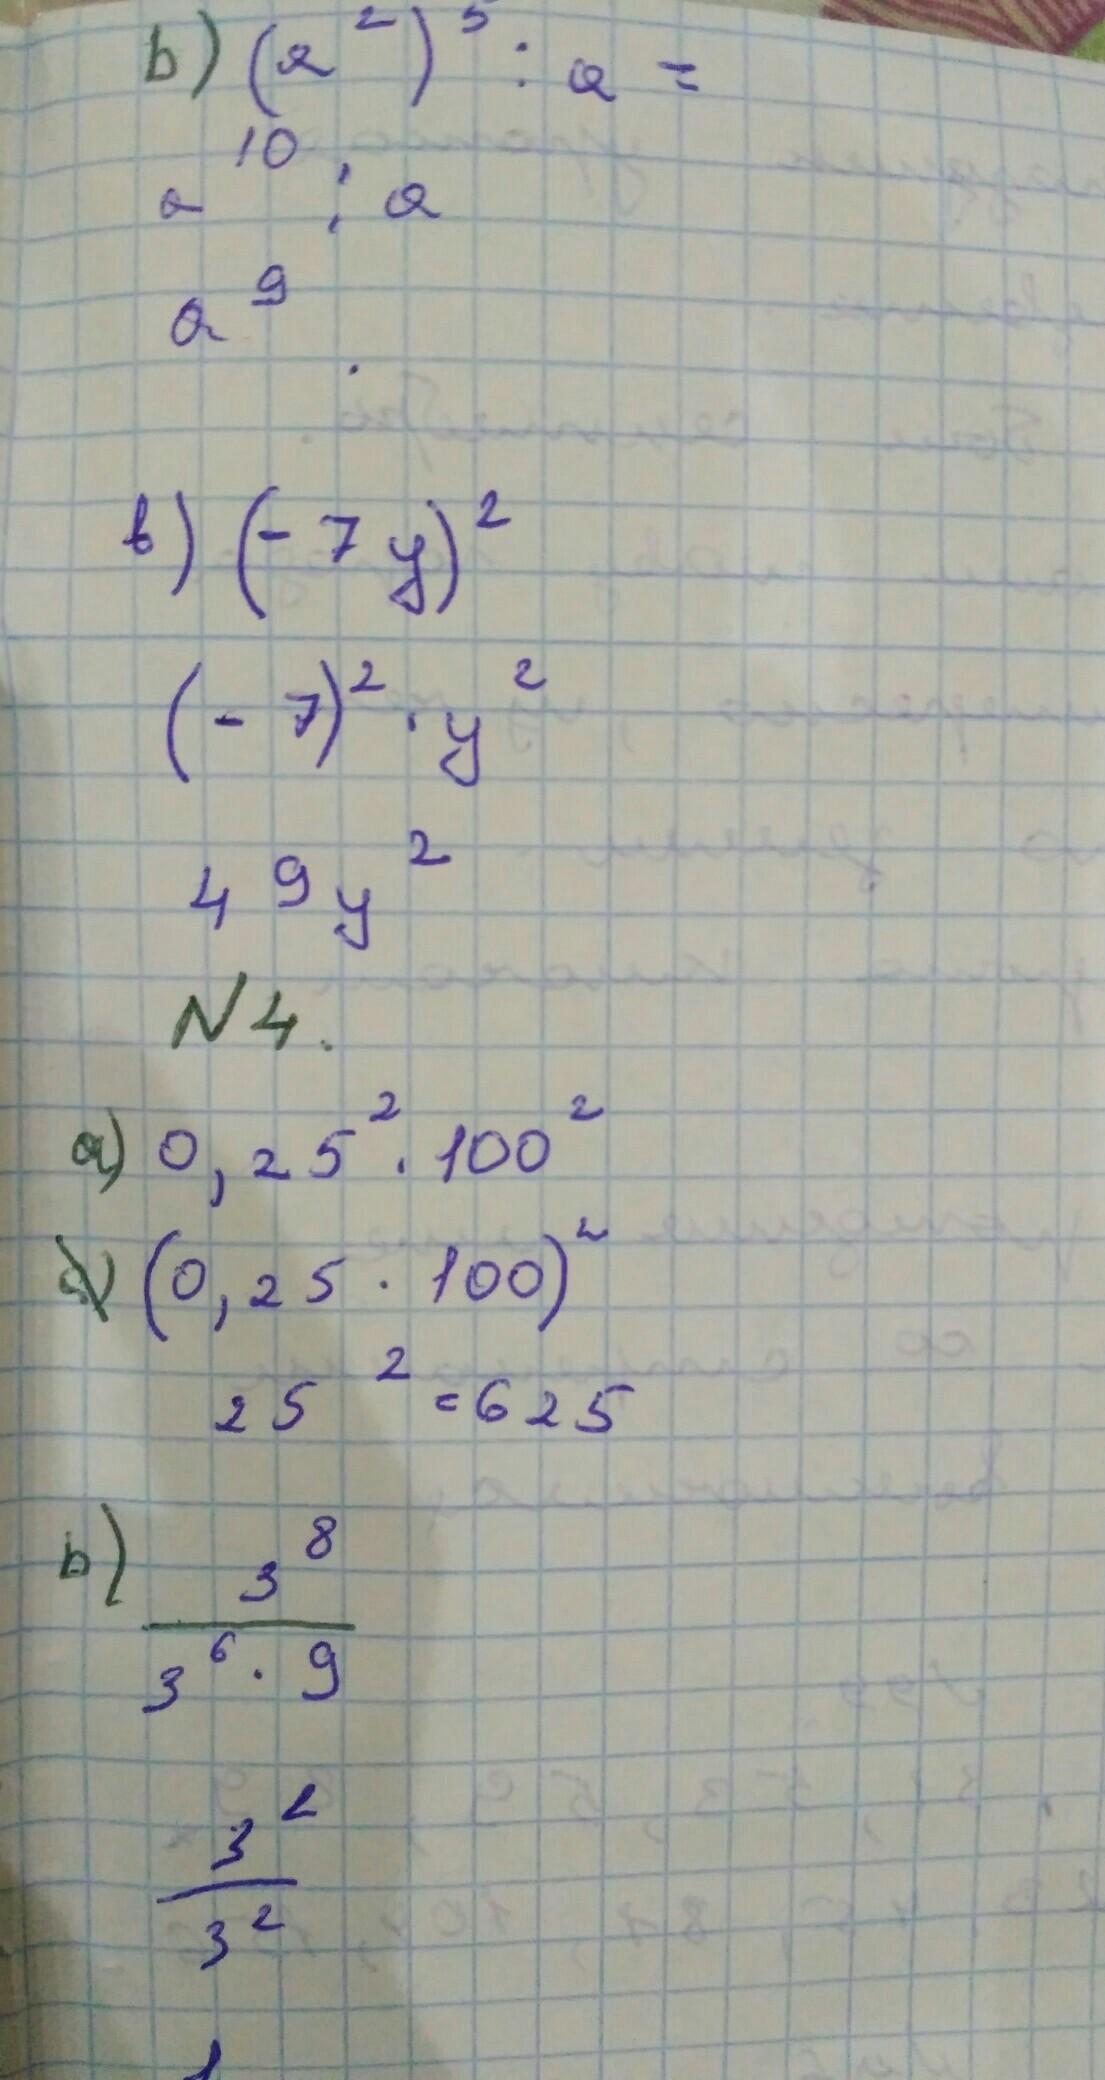 b) (a²)⁵ : a =
a¹⁰ : a
a⁹
в) (-7y)²
(-7)² · y²
49y²
N4.
а) 0,25² · 100²
(0,25 · 100)²
25² = 625
b) 3⁸
3⁶ · 9
3²
3²
1